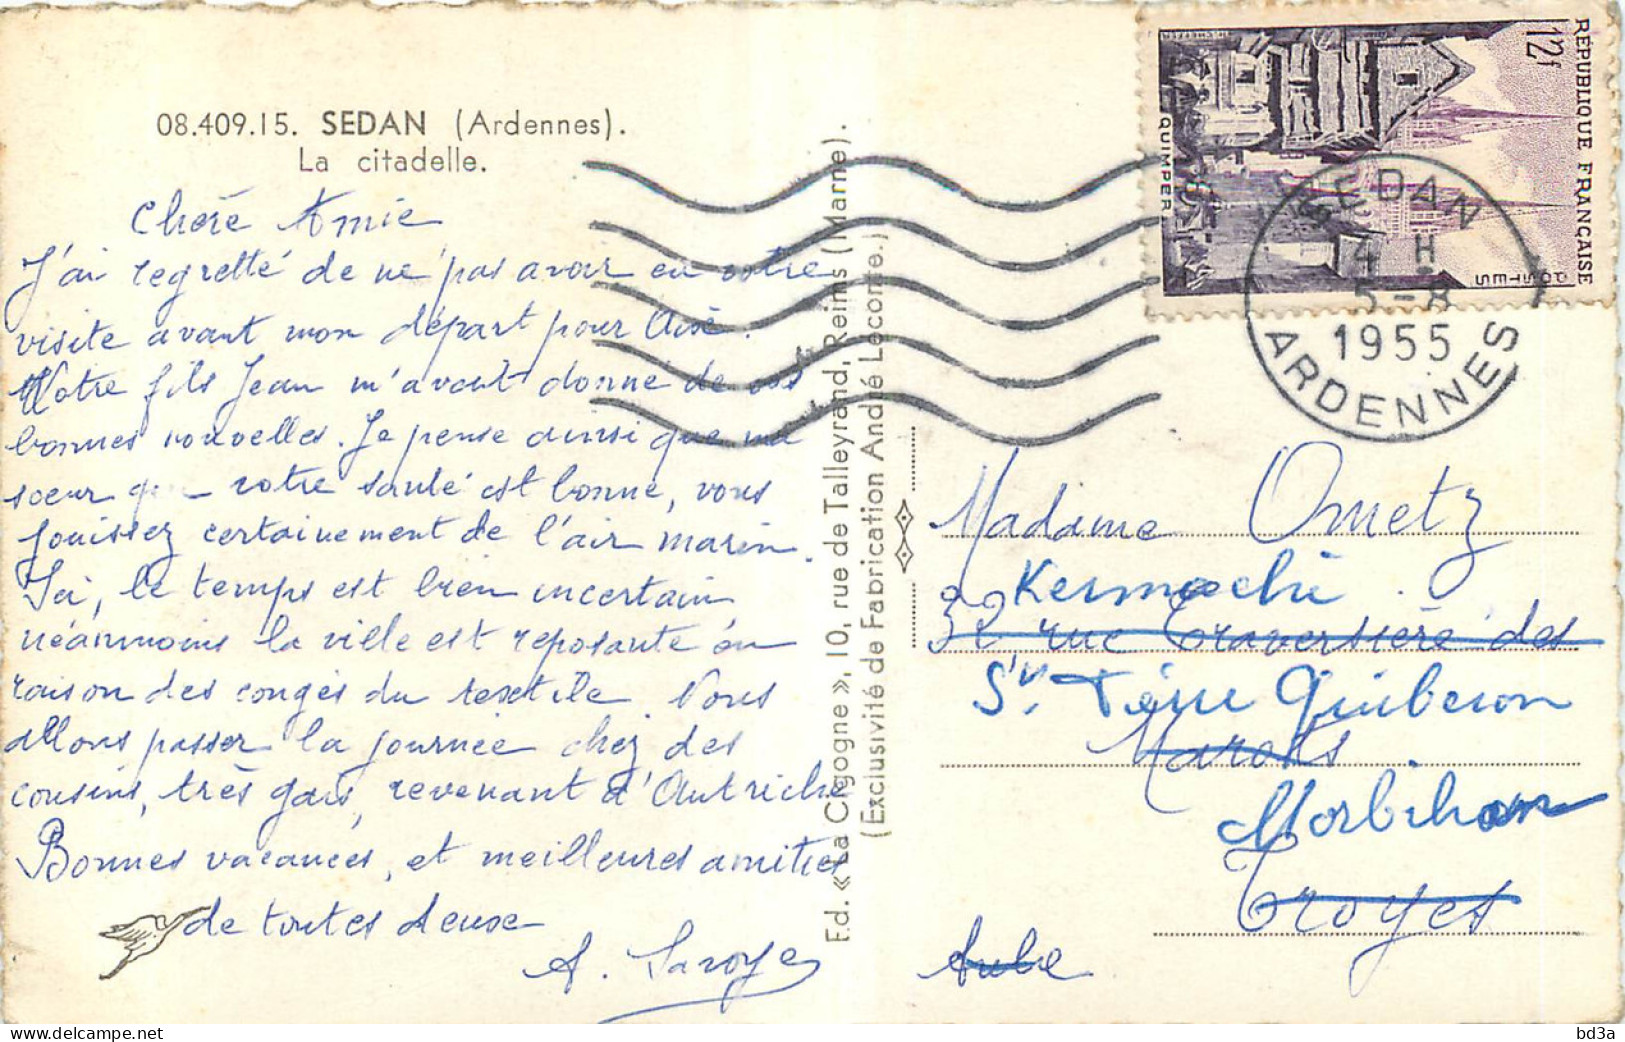 08.409.15. SEDAN (Ardennes).
La citadelle.
Chère Amie
J'ai regretté de ne pas avoir eu votre
visite avant mon départ pour
Votre fils Jean m'avait donné de vos
bonnes nouvelles. Je pense ainsi que ma
sœur que votre santé est bonne, vous
jouissez certainement de l'air marin.
Ici, le temps est bien incertain
néanmoins la ville est reposante en
raison des congés du textile. Nous
allons passer la journée chez des
cousins, très gais, revenant d'Autriche
Bonnes vacances, et meilleures amitiés
de toutes deux
A. Savoye
Ed. « La Cigogne », 10, rue de Talleyrand, Reims (Marne).
(Exclusivité de Fabrication André Lecomte.)
RÉPUBLIQUE FRANÇAISE
12f
POSTES
QUIMPER
SEDAN
H
5-8
1955
ARDENNES
Madame Ometz
32 rue Traversière des
St Pierre Quiberon
Marots
Morbihan
Troyes
Aube
bd3a